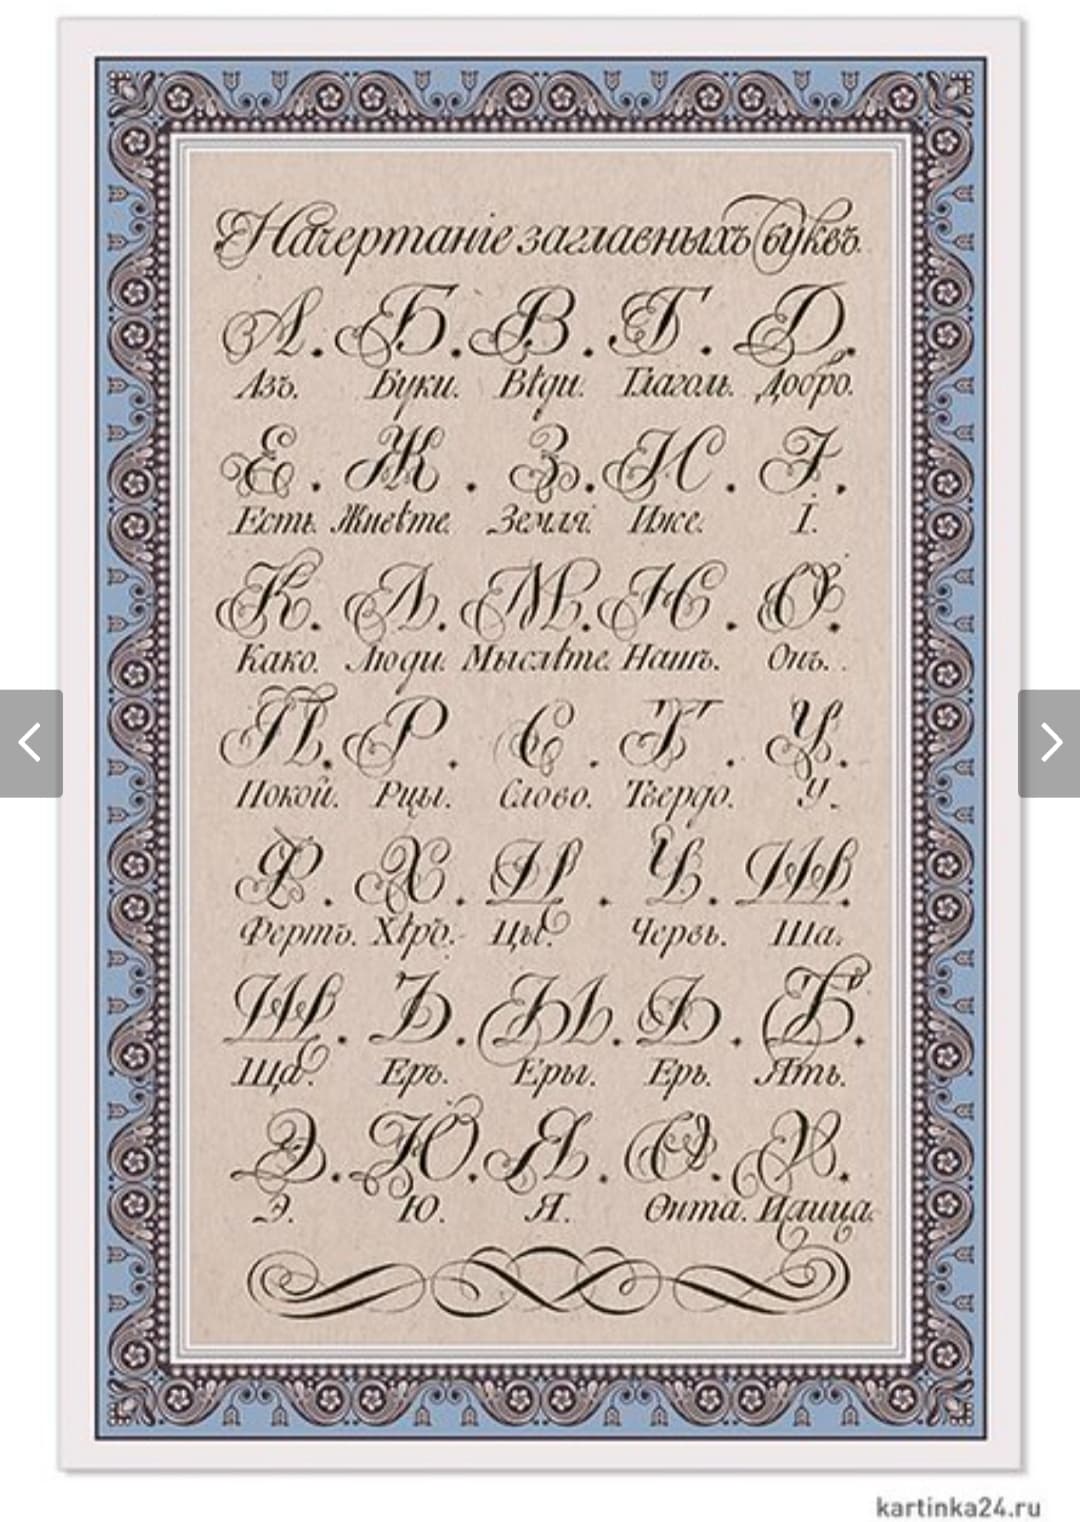 Начертаніе заглавныхъ буквъ.
А. Б. В. Г. Д.
Азъ. Буки. Вѣди. Глаголь. Добро.
Е. Ж. З. И. І.
Есть. Живѣте. Земля. Иже. І.
К. Л. М. Н. О.
Како. Люди. Мыслѣте. Нашъ. Онъ.
П. Р. С. Т. У.
Покой. Рцы. Слово. Твердо. У.
Ф. Х. Ц. Ч. Ш.
Фертъ. Хѣръ. Цы. Червь. Ша.
Щ. Ъ. Ы. Ь. Ѣ.
Ща. Еръ. Еры. Ерь. Ять.
Э. Ю. Я. Ѳ. Ѵ.
Э. Ю. Я. Ѳита. Ижица.
kartinka24.ru